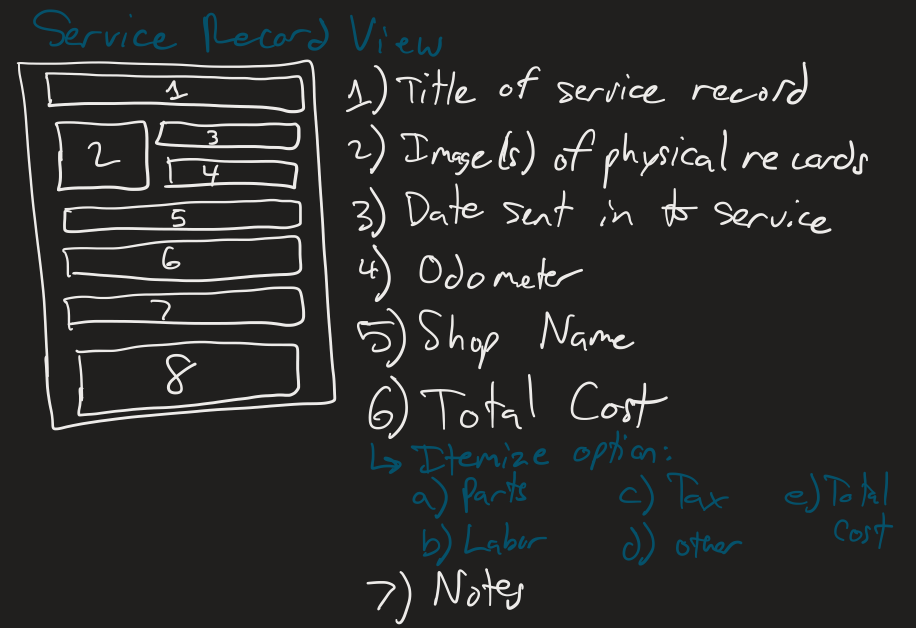 Service Record View
1
2
3
4
5
6
7
8
1) Title of service record
2) Image(s) of physical records
3) Date sent in to service
4) Odometer
5) Shop Name
6) Total Cost
↳ Itemize option:
a) Parts
b) Labor
c) Tax
d) other
e) Total
Cost
7) Notes